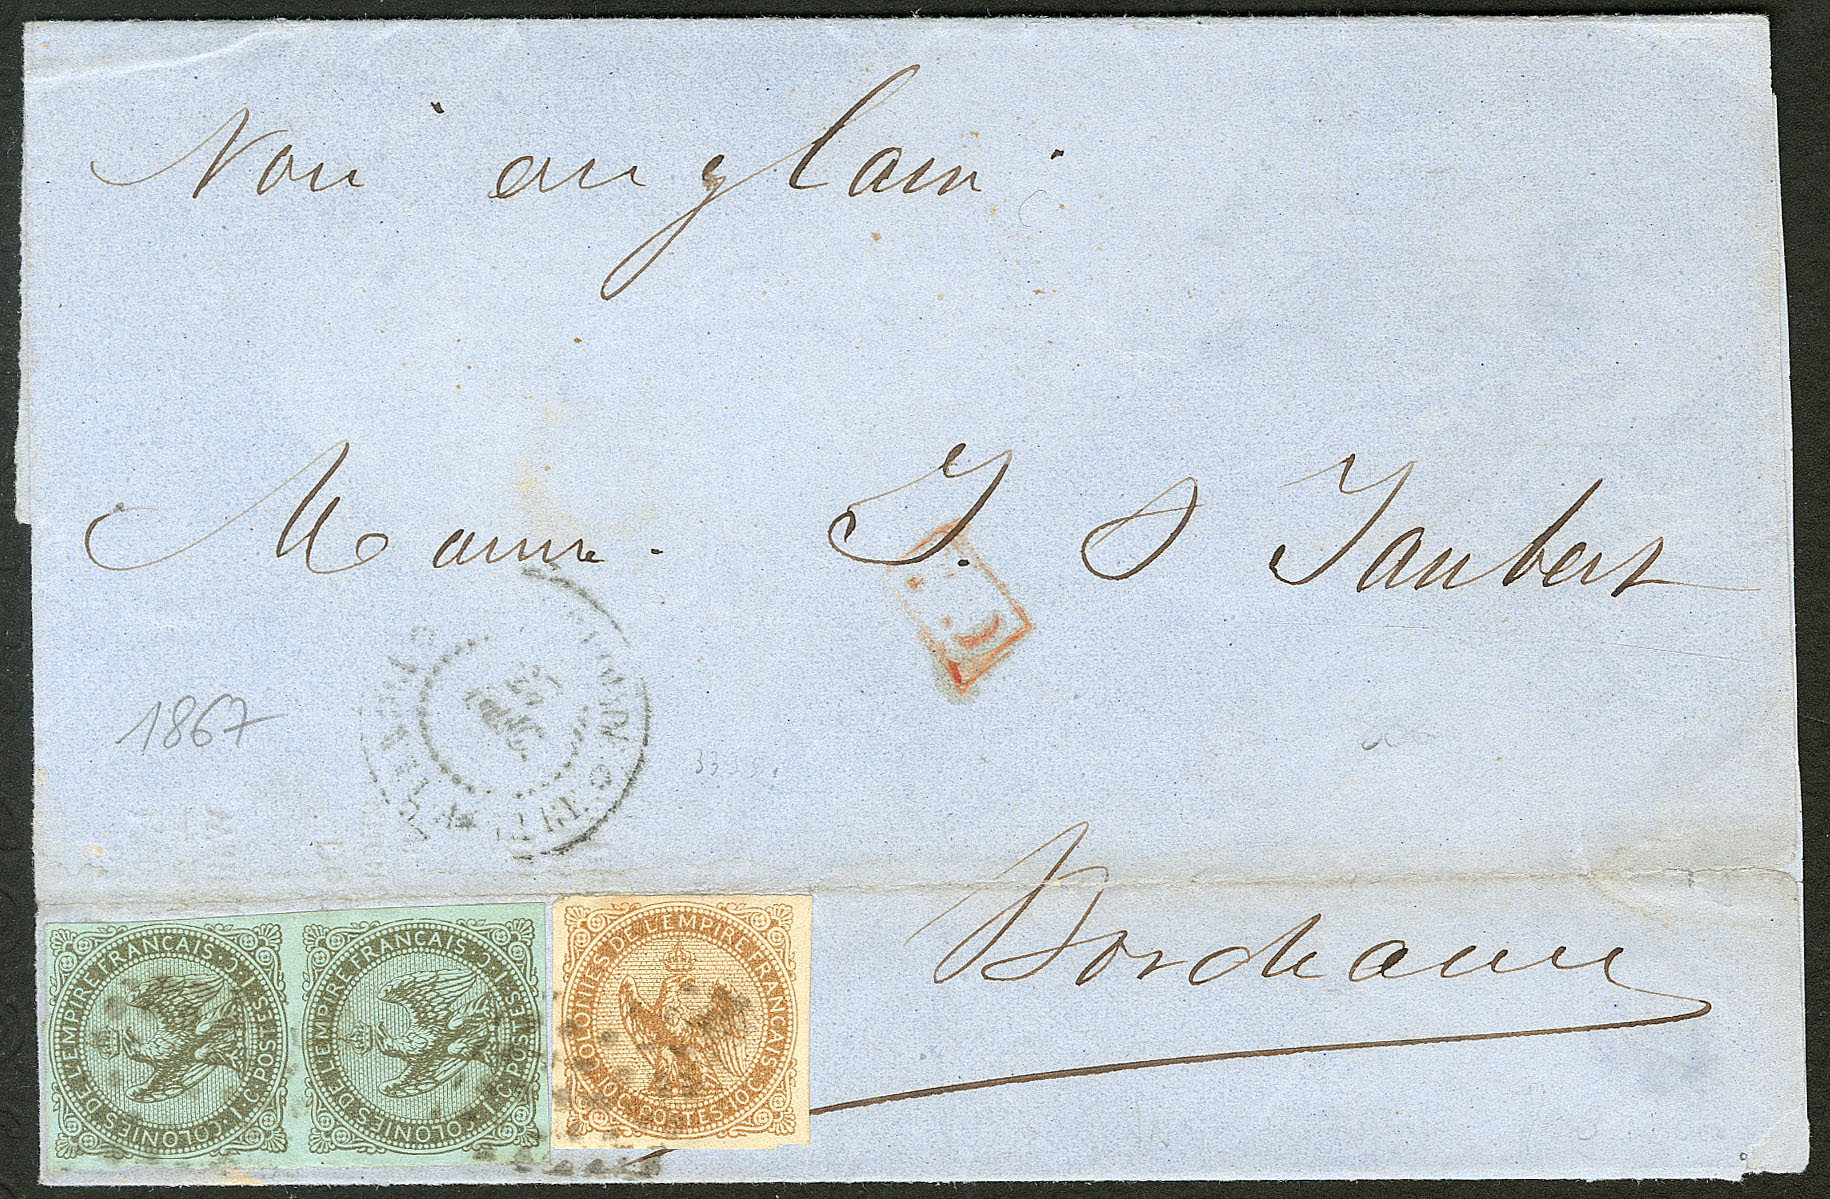 Voie anglaise
Monsieur J. S Jaubert
1867
Bordeaux
COLONIES DE L'EMPIRE FRANÇAIS · POSTES 1.C.
COLONIES DE L'EMPIRE FRANÇAIS · POSTES 1.C.
COLONIES DE L'EMPIRE FRANÇAIS · 10.C. POSTES 10.C.